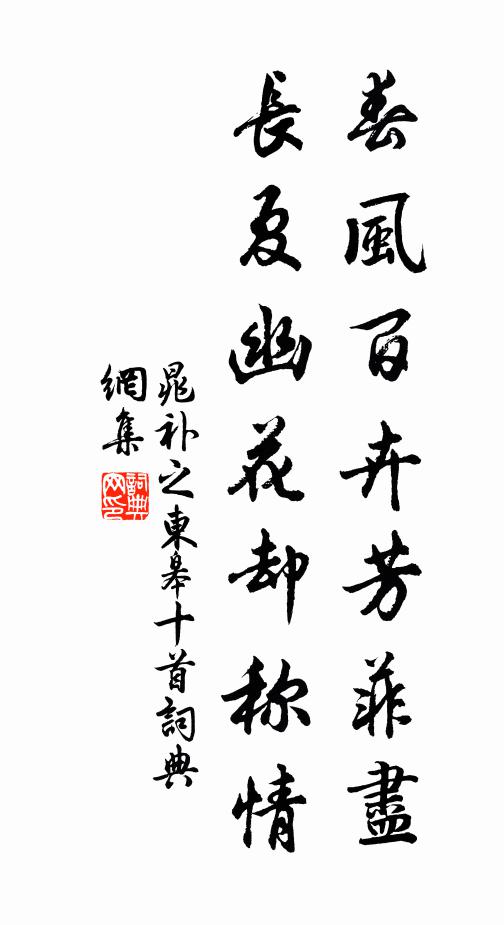 春風百卉芳菲盡
長夏幽花却称情
晁补之東皋十首詞典
網集
詞典
网印